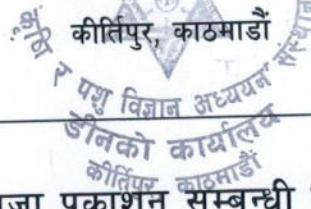 कीर्तिपुर, काठमाडौं
कृषि र पशु विज्ञान अध्ययन संस्थान
डीनको कार्यालय
कीर्तिपुर, काठमाडौं
प्रकाशन सम्बन्धी